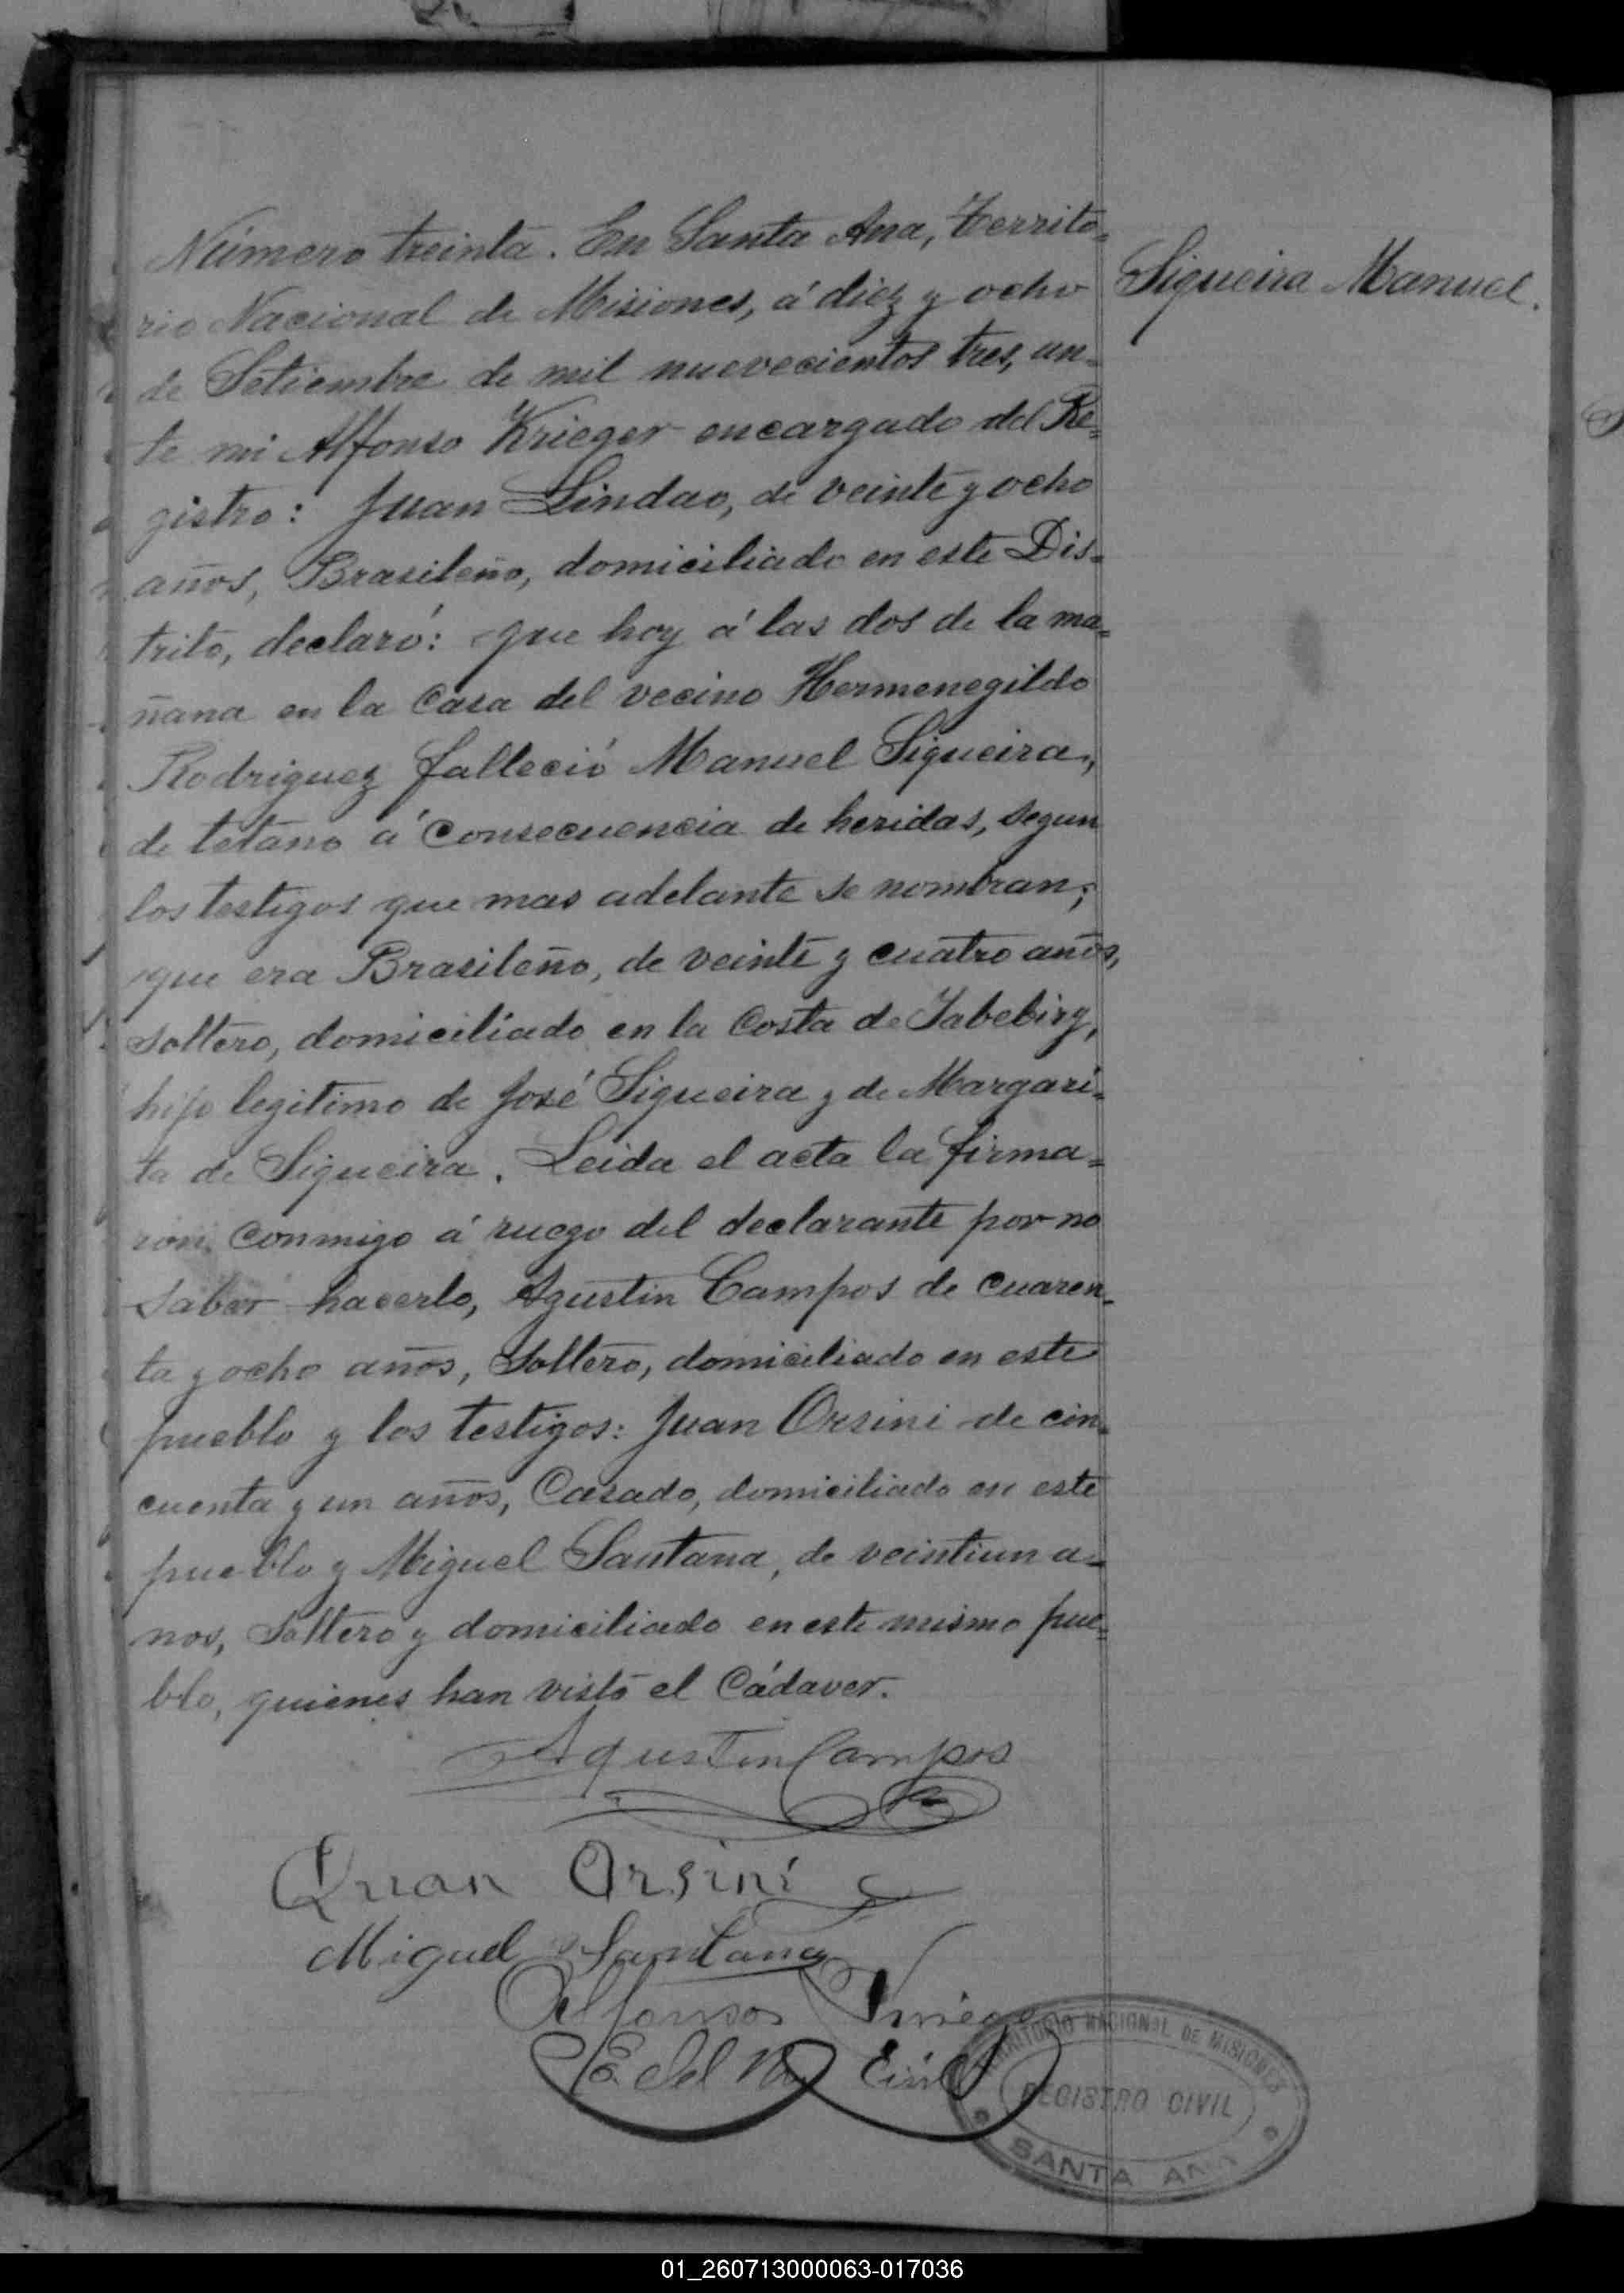 Número treinta. En Santa Ana, Territo=
rio Nacional de Misiones, á diez y ocho
de Setiembre de mil nuevecientos tres, an=
te mi Alfonso Krieger encargado del Re=
gistro: Juan Lindao, de veinte y ocho
años, Brasileño, domiciliado en este Dis=
trito, declaró: que hoy á las dos de la ma=
ñana en la Casa del vecino Hermenegildo
Rodriguez falleció Manuel Siqueira,
de tetano á Consecuencia de heridas, segun
los testigos que mas adelante se nombran;
que era Brasileño, de veinte y cuatro años,
soltero, domiciliado en la Costa de Yabebiry,
hijo legitimo de José Siqueira y de Margari=
ta de Siqueira. Leida el acta la firma=
ron, conmigo á ruego del declarante por no
saber hacerlo, Agustin Campos de cuaren=
ta y ocho años, Soltero, domiciliado en este
pueblo y los testigos: Juan Orsini de cin=
cuenta y un años, Casado, domiciliado en este
pueblo y Miguel Santana, de veintiun a=
nos, Soltero y domiciliado en este mismo pue=
blo, quienes han visto el Cádaver.
Siqueira Manuel.
Agustin Campos
Juan Orsini
Miguel Santana
Alfonso Krieger
E. del Civil
TERRITORIO NACIONAL DE MISIONES
REGISTRO CIVIL
SANTA ANA
01_260713000063-017036